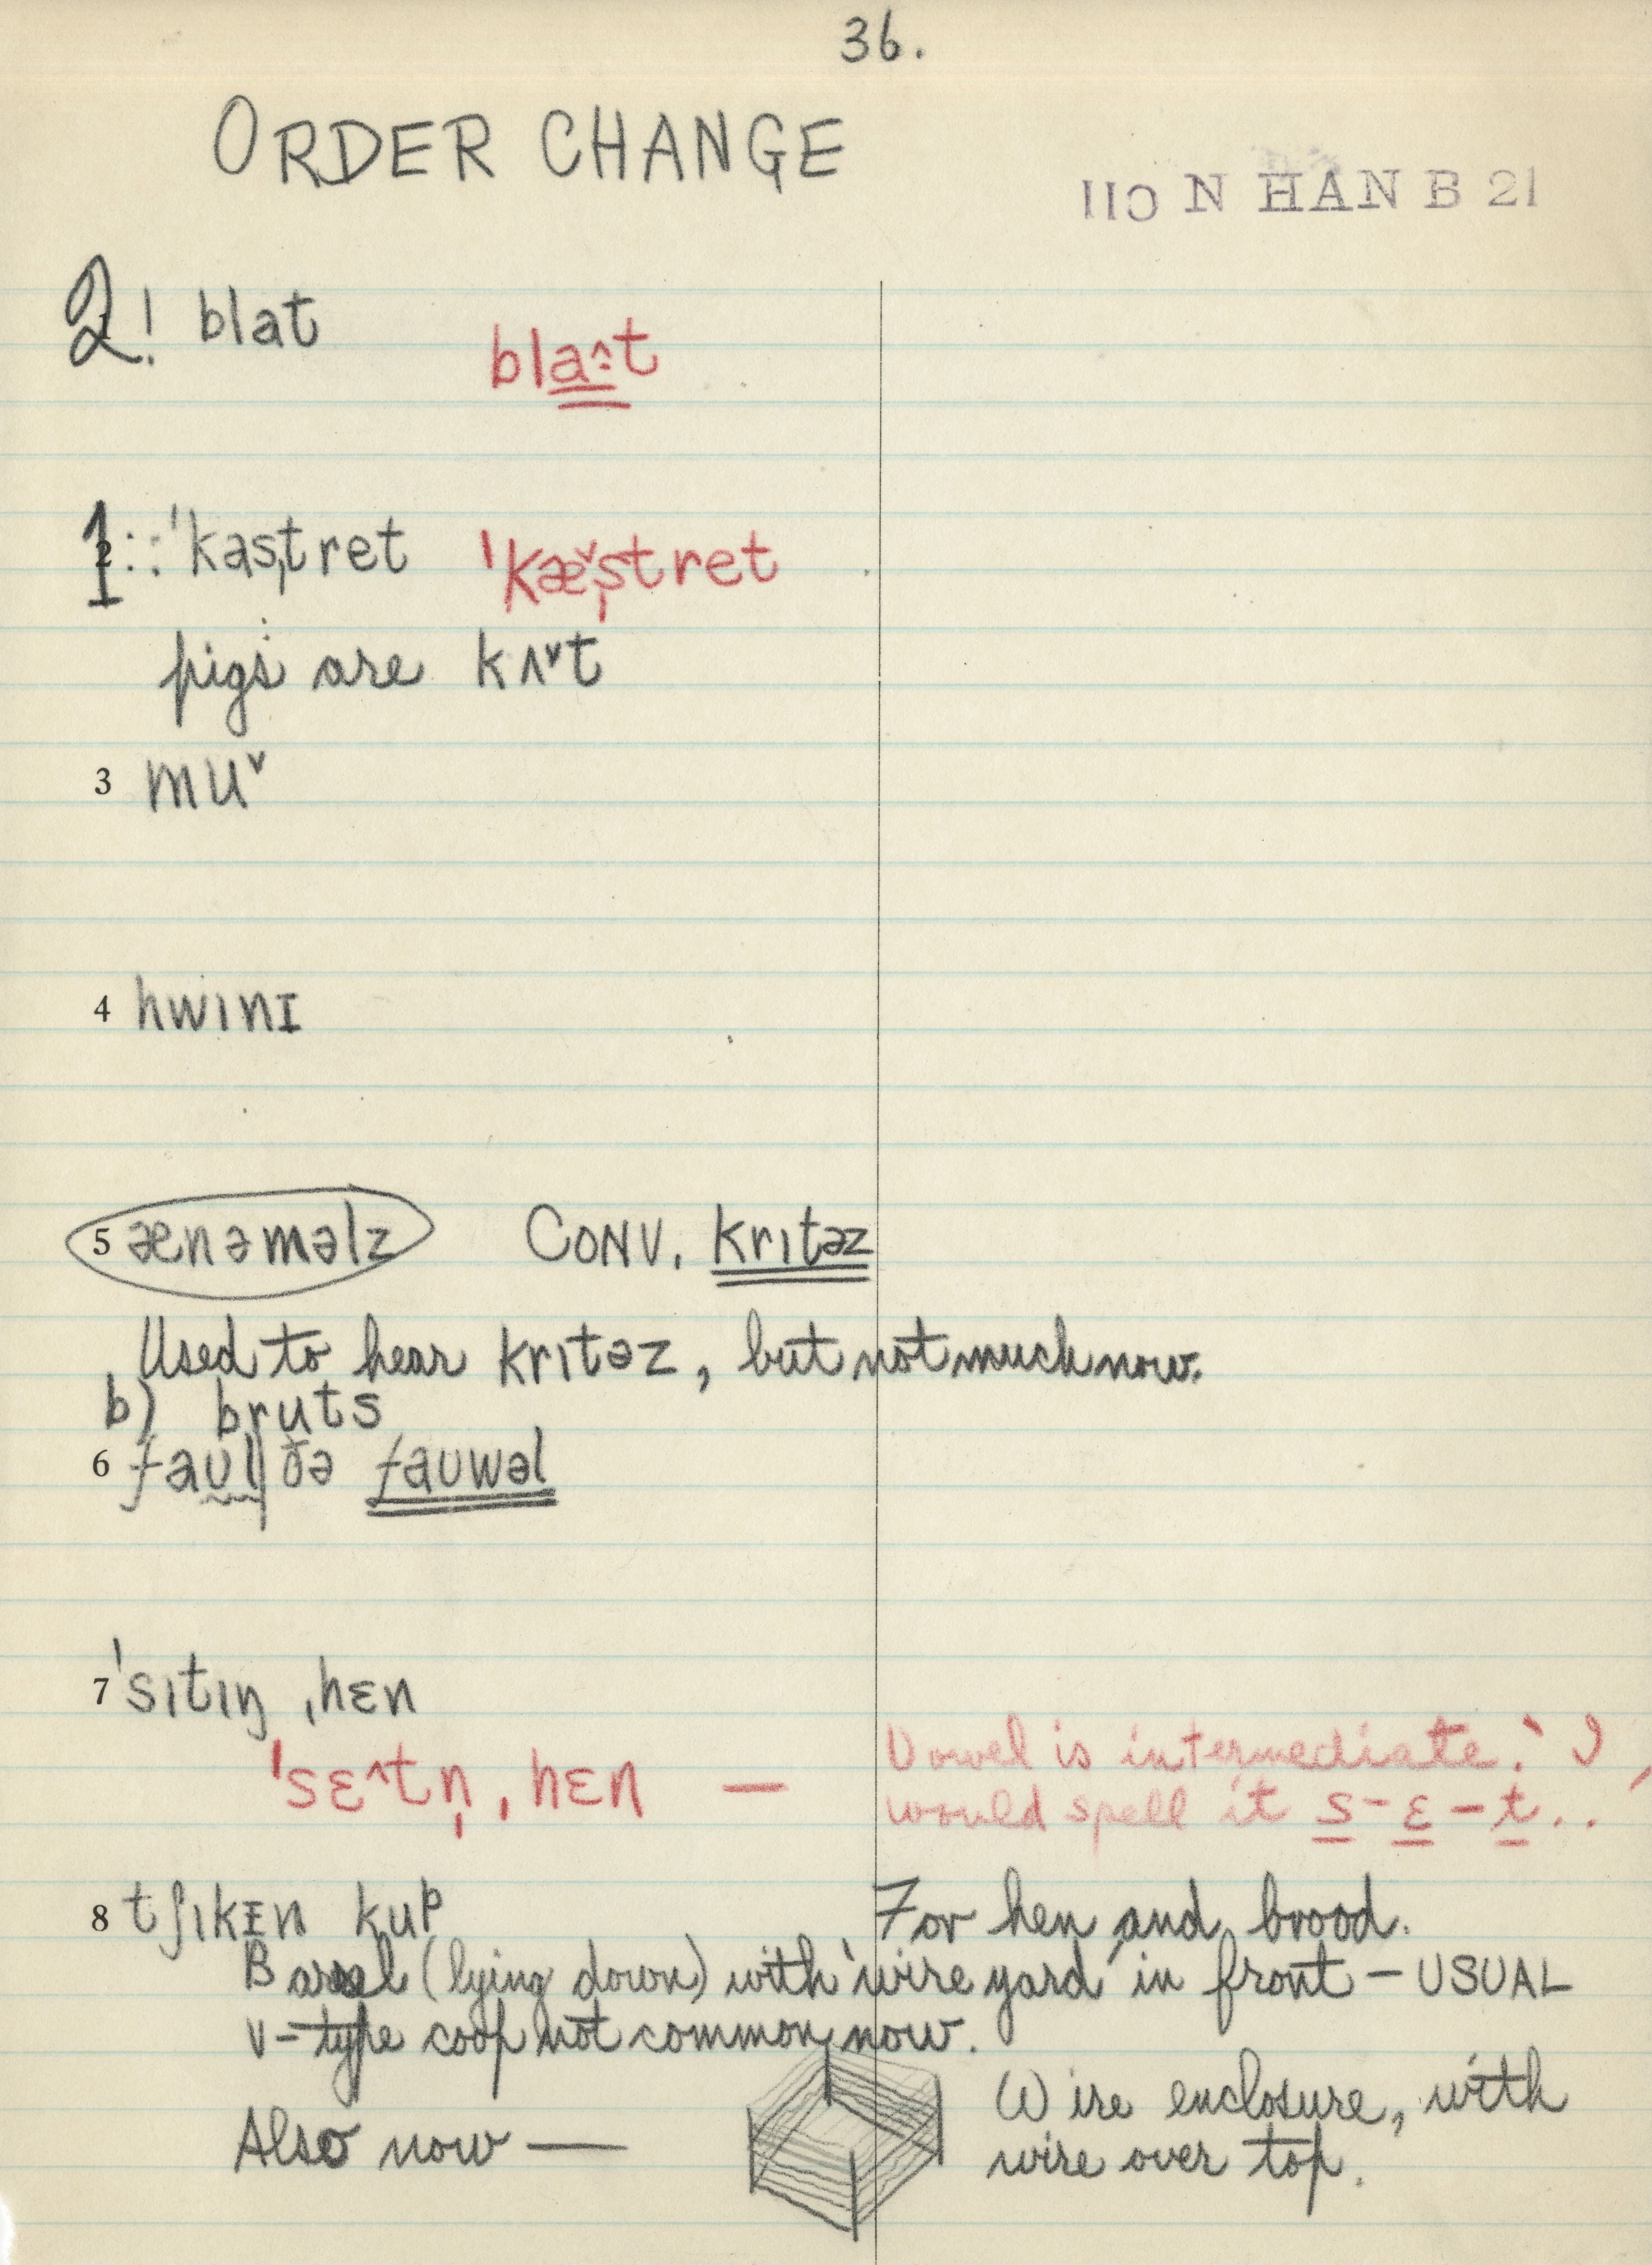 36.
ORDER CHANGE
110 N HAN B 21
2! blat
bla^:t
1 :: ˈkas̩tret ˈkæˇs̩tret
pigs are kʌˇt
3 muˇ
4 hwɪnɪ
5 ænəməlz CONV. krɪtəz
Used to hear krɪtəz, but not much now.
b) bruts
6 faʊl| ðə faʊwəl
7 ˈsɪtɪŋ ˌhɛn
ˈsɛ^tn̩ ˌhɛn — Vowel is intermediate.
would spell it s - ɛ - t..
8 tʃɪkɪn kup For hen and brood.
Barrel (lying down) with 'wire yard' in front – USUAL
V-type coop not common now.
Also now — Wire enclosure, with
wire over top.